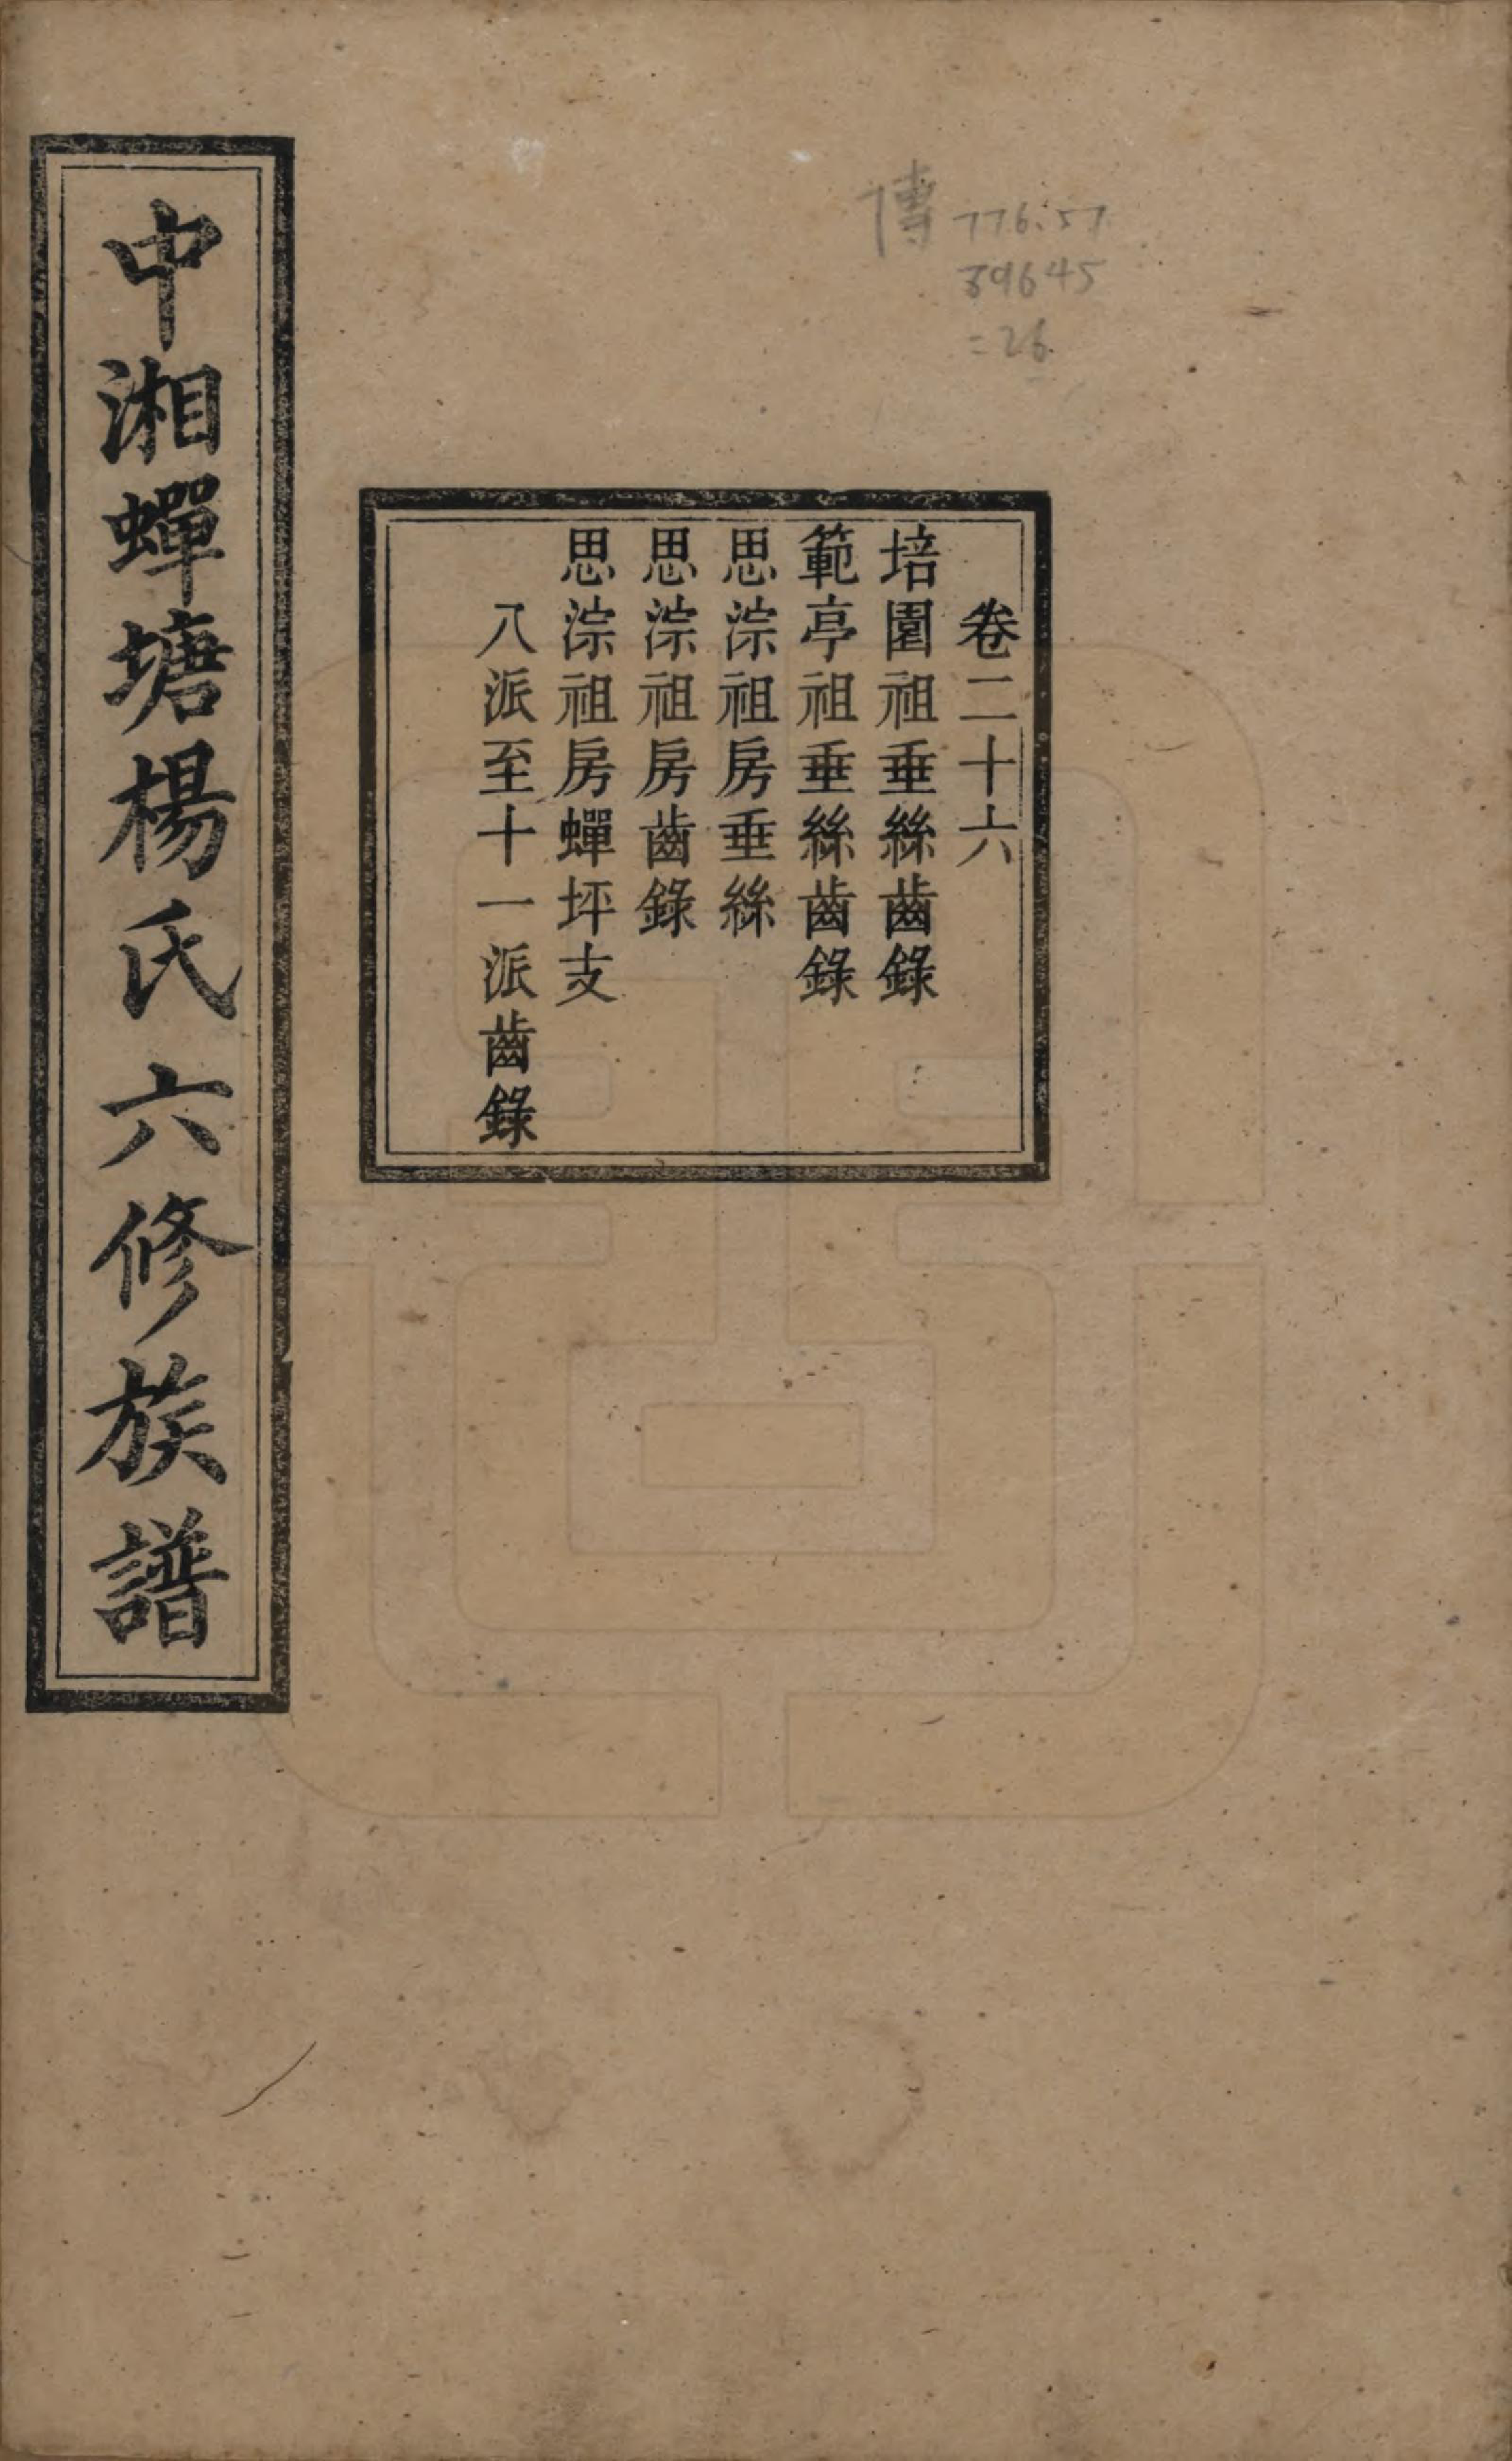 傳 776.57
89645
=26
卷二十六
培園祖垂絲齒錄
範亭祖垂絲齒錄
思淙祖房垂絲
思淙祖房齒錄
思淙祖房蟬坪支
八派至十一派齒錄
中湘蟬塘楊氏六修族譜